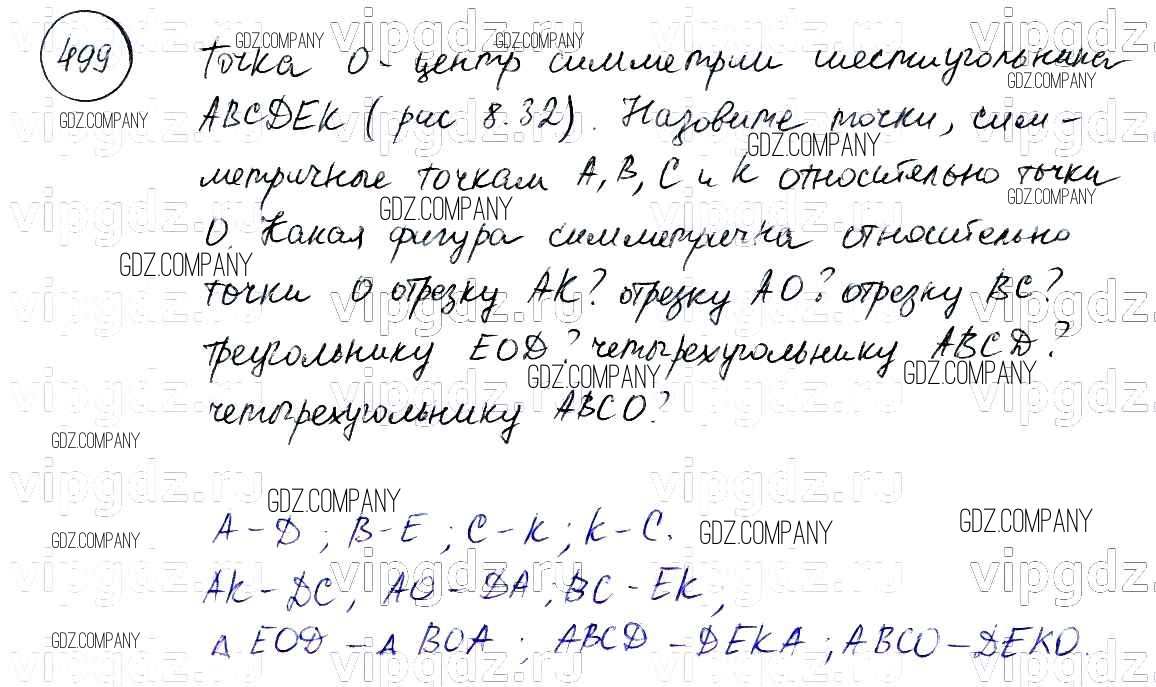 499
Точка О - центр симметрии шестиугольника
ABCDEK (рис 8.32). Назовите точки, сим-
метричные точкам A, B, C и K относительно точки
О. Какая фигура симметрична относительно
точки О отрезку AK? отрезку AO? отрезку BC?
треугольнику EOD? четырехугольнику ABCD?
четырехугольнику ABCO?
A - D ; B - E ; C - K ; K - C.
AK - DC, AO - DA ; BC - EK,
Δ EOD - Δ BOA ; ABCD - DEKA ; ABCO - DEKO.